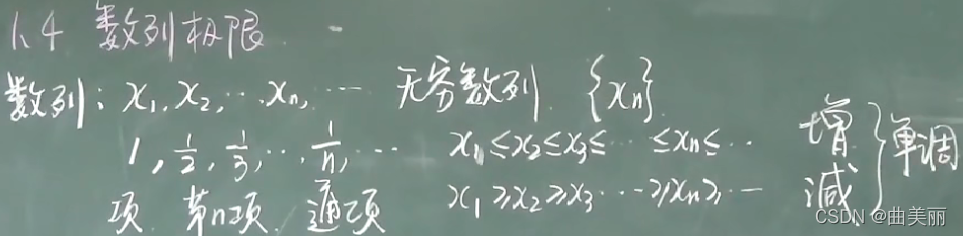 1.4 数列极限
数列: x₁, x₂, ⋯ xₙ, ⋯ 无穷数列 {xₙ}
1, 1/2, 1/3, ⋯, 1/n, ⋯ x₁≤x₂≤x₃≤⋯≤xₙ≤⋯ 增
项 第n项 通项 x₁≥x₂≥x₃⋯≥xₙ≥⋯ 减 } 单调
CSDN @曲美丽